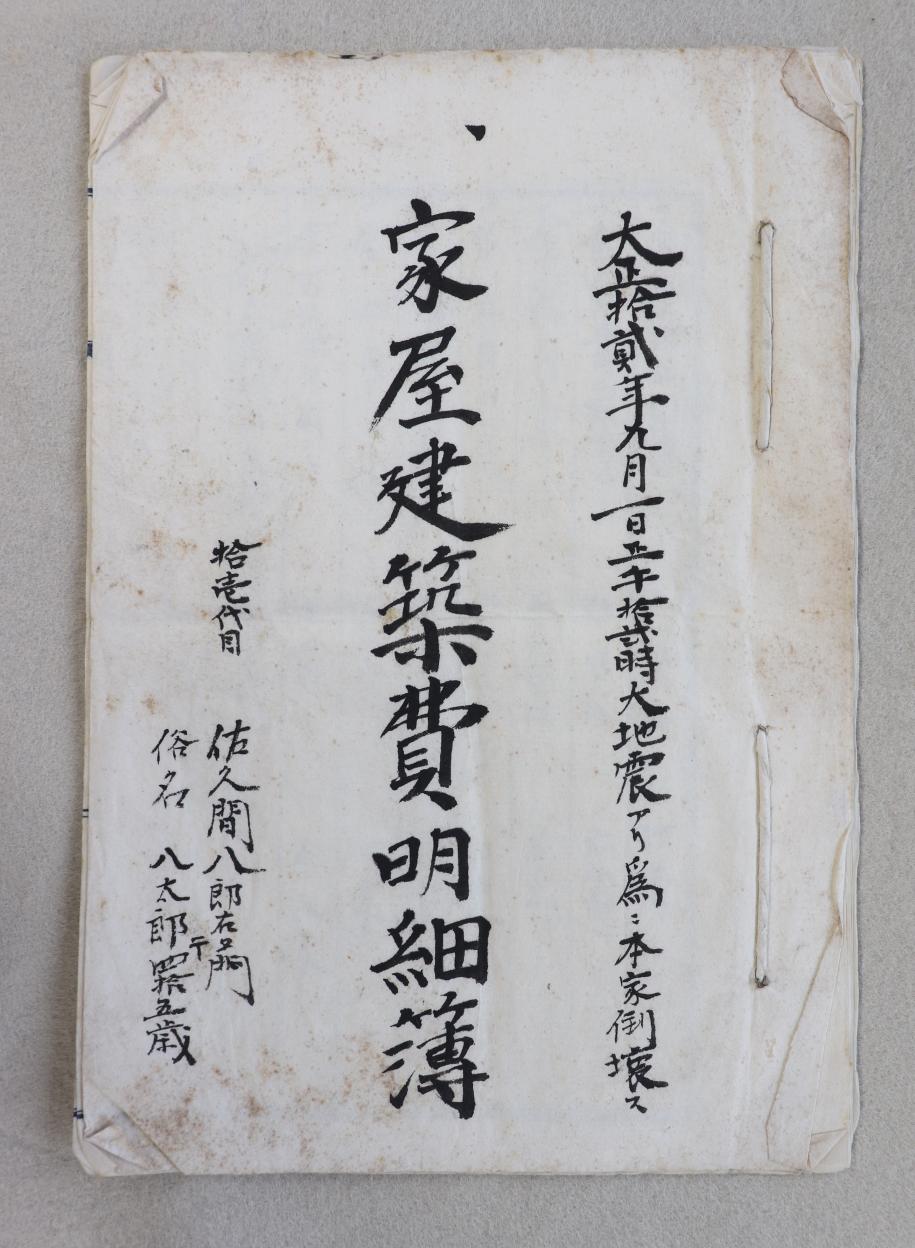 大正拾貳年九月一日正午拾貳時大地震アリ為ニ本家倒壊ス
家屋建築費明細簿
拾壱代目
佐久間八郎右エ門
俗名 八太郎 四拾五歳